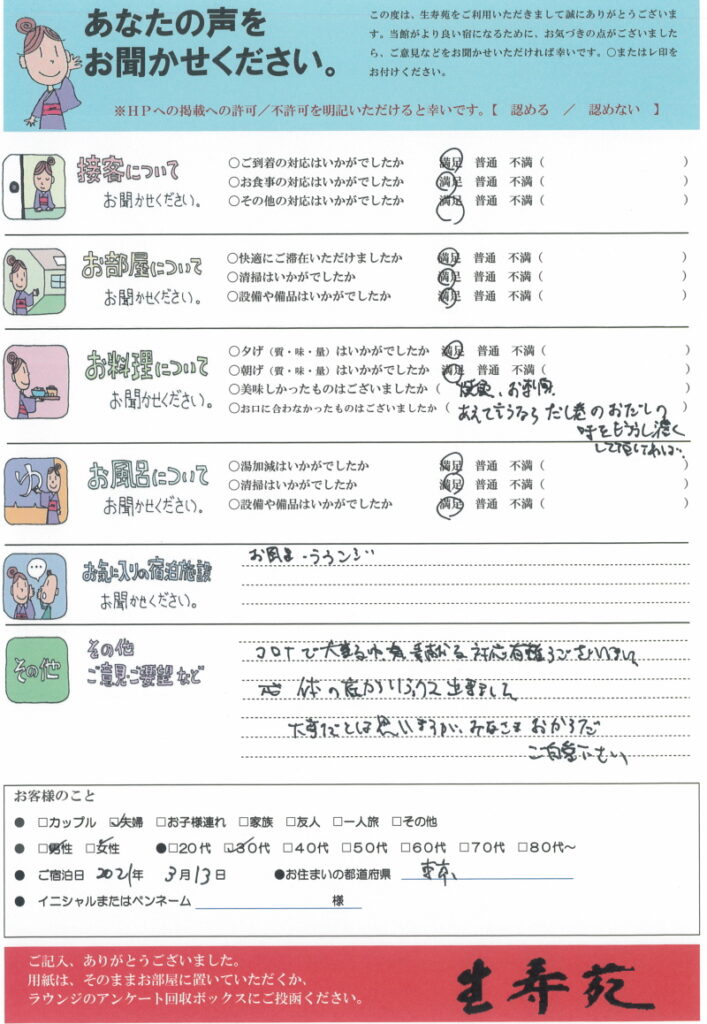 あなたの声を
お聞かせください。
この度は、生寿苑をご利用いただきまして誠にありがとうございま
す。当館がより良い宿になるために、お気づきの点がございました
ら、ご意見などをお聞かせいただければ幸いです。○またはレ印を
お付けください。
※HPへの掲載への許可/不許可を明記いただけると幸いです。【 認める / 認めない 】
接客について
お聞かせください。
○ご到着の対応はいかがでしたか 満足 普通 不満 ( )
○お食事の対応はいかがでしたか 満足 普通 不満 ( )
○その他の対応はいかがでしたか 満足 普通 不満 ( )
お部屋について
お聞かせください。
○快適にご滞在いただけましたか 満足 普通 不満 ( )
○清掃はいかがでしたか 満足 普通 不満 ( )
○設備や備品はいかがでしたか 満足 普通 不満 ( )
お料理について
お聞かせください。
○夕げ(質・味・量)はいかがでしたか 満足 普通 不満 ( )
○朝げ(質・味・量)はいかがでしたか 満足 普通 不満 ( )
○美味しかったものはございましたか ( お刺身 )
○お口に合わなかったものはございましたか ( あえて言うなら だし巻のおだしの )
味をもう少し濃く
して頂ければ…
ゆ
お風呂について
お聞かせください。
○湯加減はいかがでしたか 満足 普通 不満 ( )
○清掃はいかがでしたか 満足 普通 不満 ( )
○設備や備品はいかがでしたか 満足 普通 不満 ( )
お気に入りの宿泊施設
お聞かせください。
お風呂・ラウンジ
その他
その他
ご意見・ご要望など
コロナで大変な中、素敵な対応有難うございました
心 体の底からリラックス出来ました
大変だとは思いますが、みなさま おからだ
ご自愛下さい
お客様のこと
● □カップル □夫婦 □お子様連れ □家族 □友人 □一人旅 □その他
● □男性 □女性 ●□20代 □30代 □40代 □50代 □60代 □70代 □80代〜
● ご宿泊日 2021年 3月13日 ●お住まいの都道府県 東京
● イニシャルまたはペンネーム 様
ご記入、ありがとうございました。
用紙は、そのままお部屋に置いていただくか、
ラウンジのアンケート回収ボックスにご投函ください。
生寿苑